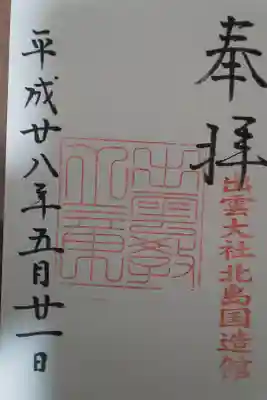 奉拝
出雲大社北島国造館
出雲教
平成廿八年五月廿一日